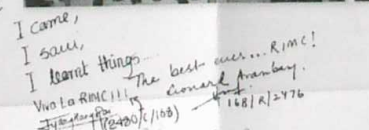 I came,
I saw,
I learnt things
The best ever... RIMC!
Viva La RIMC!!!
(2480/C/168)
168/R/2476